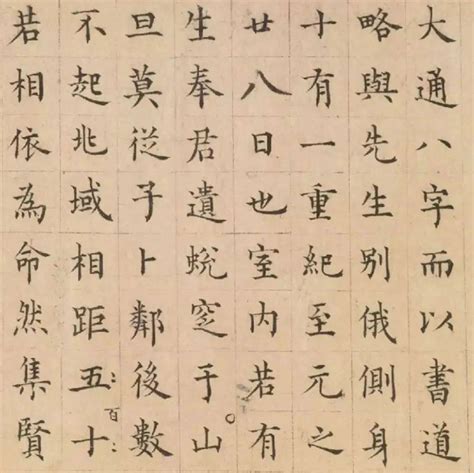 大通八字而以書道
略與先生別俄側身
十有一重紀至元之
廿八日也室内若有
生奉君遺蛻窆于山
旦莫從子卜鄰後數
不起兆域相距五百十
若相依為命然集賢